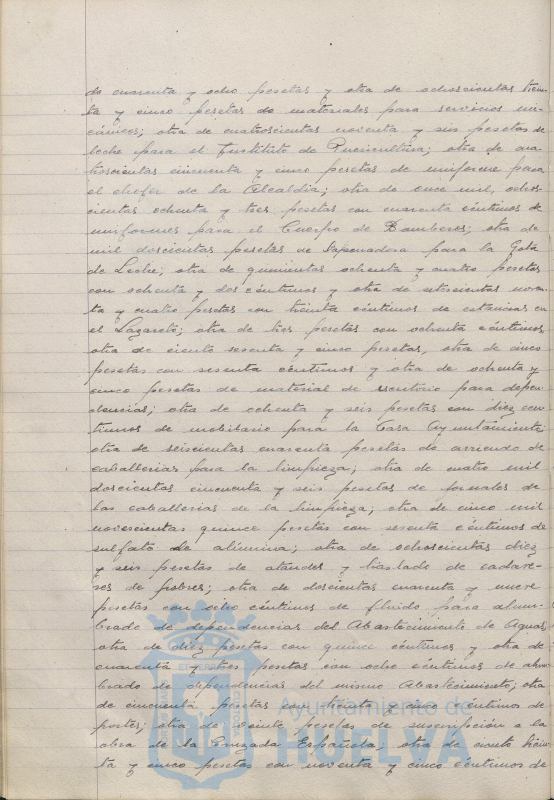 de cuarenta y ocho pesetas y otra de ochocientas trein-
ta y cinco pesetas de materiales para servicios me-
cánicos; otra de cuatrocientas noventa y seis pesetas de
leche para el Instituto de Puericultura; otra de cua-
trocientas cincuenta y cinco pesetas de uniforme para
el chofer de la Alcaldia; otra de once mil, ochos-
cientas ochenta y tres pesetas con cuarenta céntimos de
uniformes para el Cuerpo de Bomberos; otra de
mil doscientas pesetas de para la Gota
de Leche; otra de quinientas ochenta y cuatro pesetas
con ochenta y dos céntimos y otra de setecientas noven-
ta y cuatro pesetas con treinta céntimos de estancias en
el Lazareto; otra de tres pesetas con ochenta céntimos,
otra de ciento sesenta y cinco pesetas, otra de cinco
pesetas con sesenta céntimos y otra de ochenta y
cinco pesetas de material de escritorio para depen-
dencias; otra de ochenta y seis pesetas con diez cen-
timos de mobiliario para la Casa Ayuntamiento;
otra de seiscientas cuarenta pesetas de arriendo de
caballerias para la limpieza; otra de cuatro mil
doscientas cincuenta y seis pesetas de jornales de
las caballerias de la limpieza; otra de cinco mil
novescientas quince pesetas con sesenta céntimos de
sulfato de alúmina; otra de ochocientas diez
y seis pesetas de ataudes y traslado de cadave-
res de pobres; otra de doscientas cuarenta y nueve
pesetas con ocho céntimos de fluido para alum-
brado de dependencias del Abastecimiento de Aguas,
otra de diez pesetas con quince céntimos y otra de
cuarenta y tres pesetas con ocho céntimos de alum-
brado de dependencias del mismo Abastecimiento; otra
de cincuenta pesetas con treinta y cinco céntimos de
portes; otra de veinte pesetas de suscripción a la
obra de la Cruzada Española; otra de ciento trein-
ta y cinco pesetas con noventa y cinco céntimos de
Ayuntamiento de
HUELVA